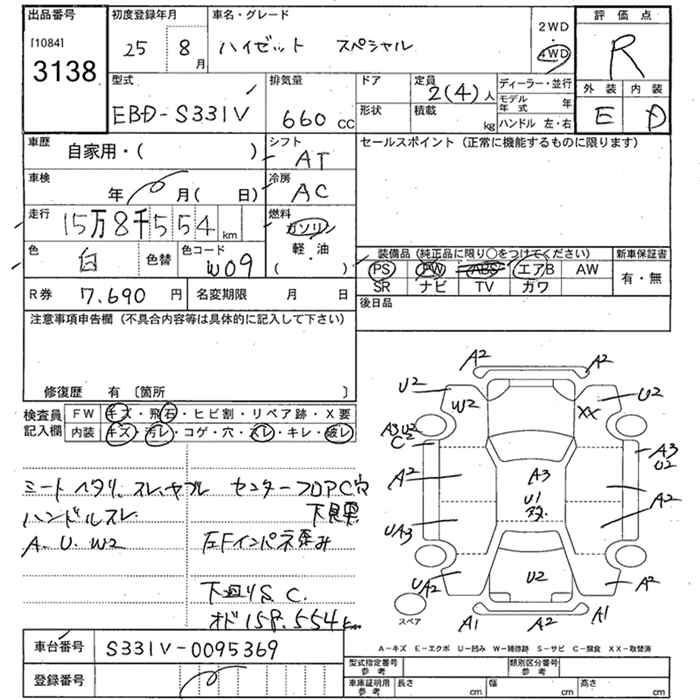 出品番号 初度登録年月 車名・グレード 2WD 評価点
[1084] 25 8月 ハイゼット スペシャル 4WD R
3138
型式 排気量 ドア 定員 ディーラー・並行 外装 内装
EBD-S331V 660cc 2(4)人 モデル年式 年 E D
形状 積載 kg ハンドル 左・右
車歴 シフト セールスポイント(正常に機能するものに限ります)
自家用・( ) AT
車検 冷房
年 月( 日) AC
走行 15万8千554km 燃料 ガソリン
軽・油
( )
色 白 色替 色コード W09
装備品(純正品に限り○をつけてください) 新車保証書
PS PW ABS エアB AW 有・無
SR ナビ TV ガワ
R券 7,690円 名変期限 月 日 後日品
注意事項申告欄(不具合内容等は具体的に記入して下さい)
修復歴 有〔箇所 〕
検査員記入欄 FW キズ・飛石・ヒビ割・リペア跡・X要
内装 キズ・汚レ・コゲ・穴・スレ・キレ・破レ
ミート ヘタリ. スレ.ヤブレ センターフロアPC穴
ハンドルスレ 下見要
A. U. W2 左Fインパネ歪み
下廻りS. C.
オド158.554km
A2 A2
U2 W2 XX U2
A3 U2 C2 A3 U2
A2 A3 A2
U1
UA3 A2
UA2 U2 A2
A1 A2 A1
スペア
A-キズ E-エクボ U-凹み W-補修跡 S-サビ C-腐食 XX-取替済
車台番号 S331V-0095369
登録番号
型式指定番号 参考 類別区分番号 参考
車庫証明用 参考 長さ cm 幅 cm 高さ cm